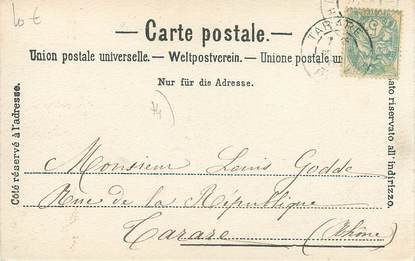 10 €
— Carte postale. —
Union postale universelle. — Weltpostverein. — Unione postale
Nur für die Adresse.
Côté réservé à l'adresse.
riservato all'indirizzo.
TARARE
Monsieur Louis Godde
Rue de la République
Tarare (Rhône)